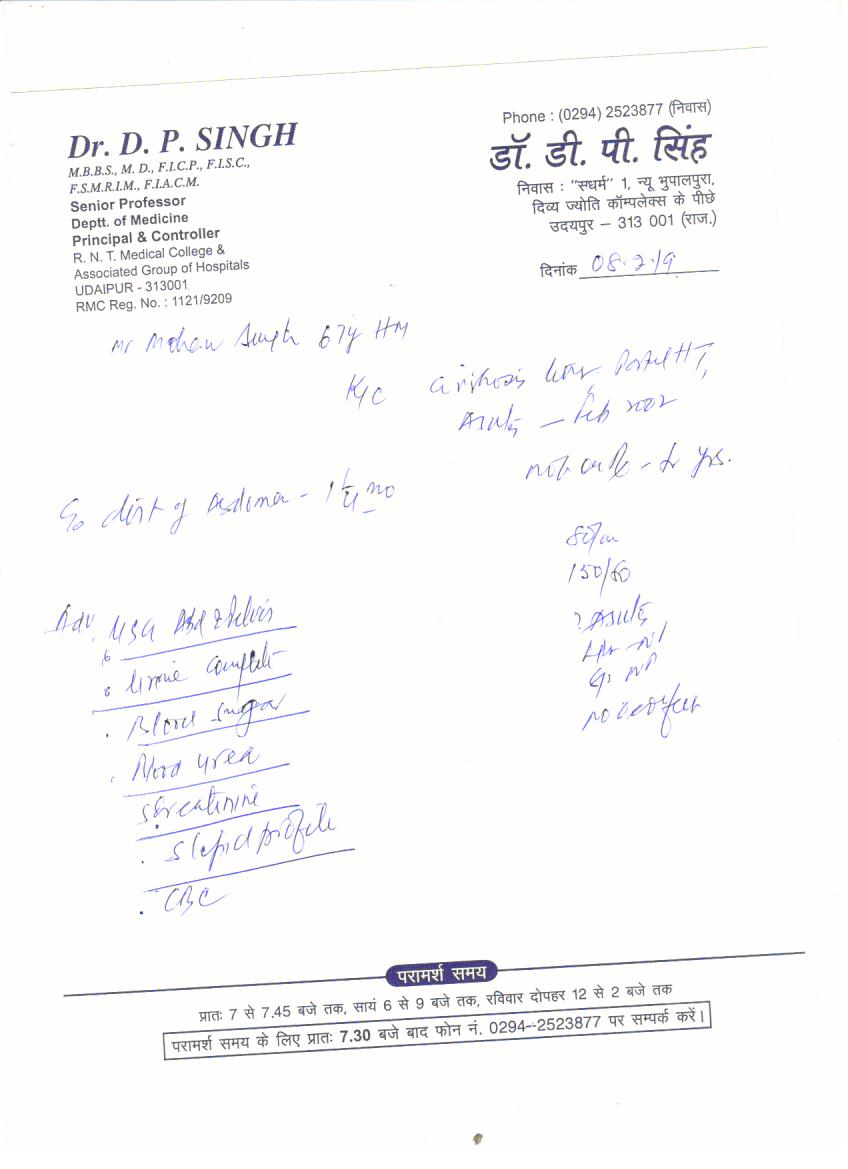 Dr. D. P. SINGH
M.B.B.S., M. D., F.I.C.P., F.I.S.C.,
F.S.M.R.I.M., F.I.A.C.M.
Senior Professor
Deptt. of Medicine
Principal & Controller
R. N. T. Medical College &
Associated Group of Hospitals
UDAIPUR - 313001
RMC Reg. No. : 1121/9209
Phone : (0294) 2523877 (निवास)
डॉ. डी. पी. सिंह
निवास : "सधर्म" 1, न्यू भुपालपुरा,
दिव्य ज्योति कॉम्पलेक्स के पीछे
उदयपुर – 313 001 (राज.)
दिनांक 08.2.19
Mr Mohan Singh 67y HM
K/C cirrhosis liver, Portal HT,
Ascites – Feb 2002
not on R – yrs.
C/o dist of Abdomen - 1
80/m
150/60
? Ascites
no
Adv. USG Abd & Pelvis
Urine complete
Blood sugar
Blood urea
S creatinine
S lipid profile
CBC
परामर्श समय
प्रातः 7 से 7.45 बजे तक, सायं 6 से 9 बजे तक, रविवार दोपहर 12 से 2 बजे तक
परामर्श समय के लिए प्रातः 7.30 बजे बाद फोन नं. 0294--2523877 पर सम्पर्क करें।